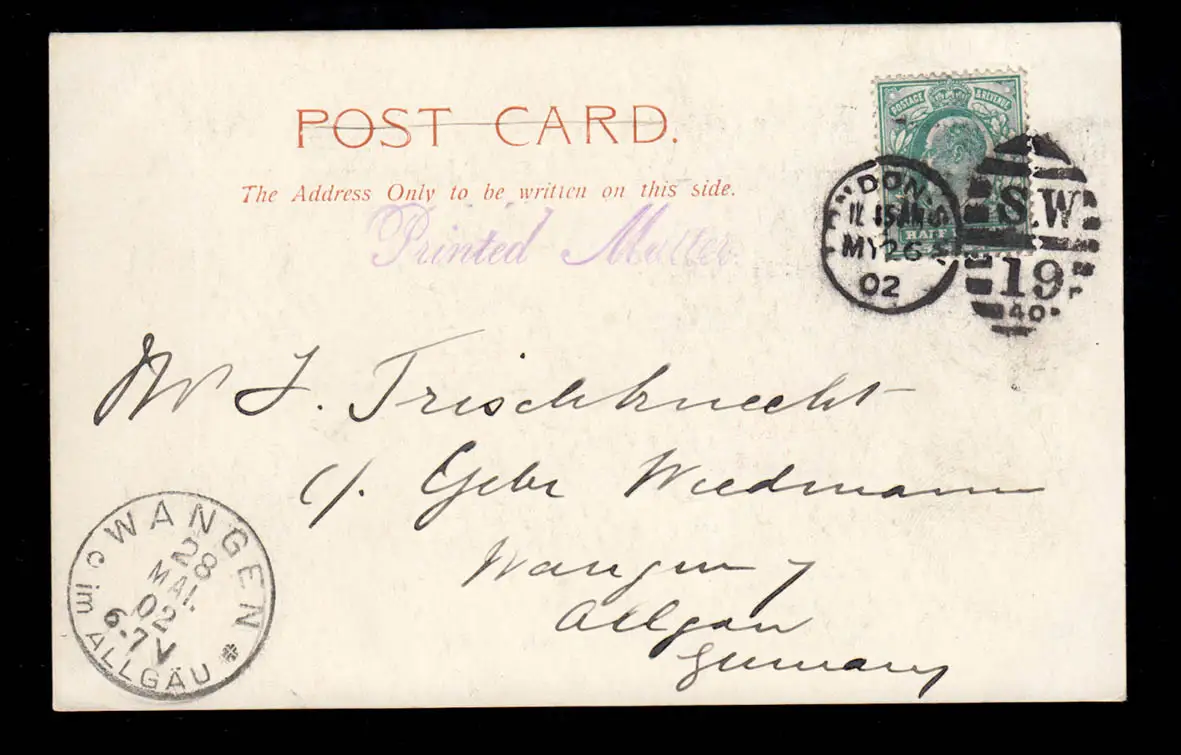 POST CARD.
The Address Only to be written on this side.
Printed Matter.
POSTAGE & REVENUE
HALF
LONDON. S.W
11 15 AM
MY 26
02
S.W
19
40
Mr J. Frischknecht
c/. Gebr Wiedmann
Wangen
Allgau
Germany
WANGEN
28
MAI.
02
6-7V
c im ALLGÄU